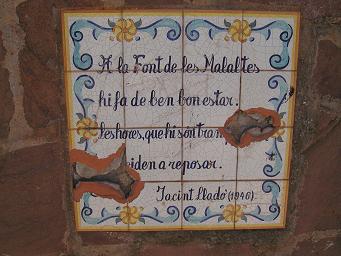 A la Font de les Malaltes
hi fa de ben bon estar.
les hores, que hi son tran
viden a reposar.
Jacint Lladó (1946)